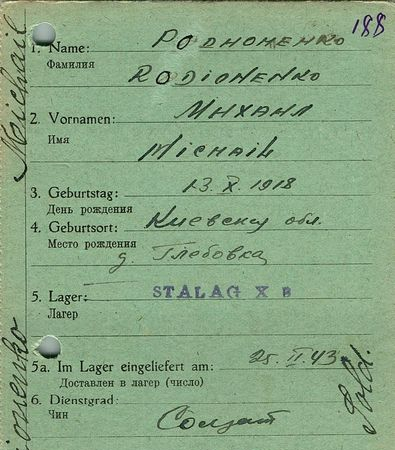 188
1. Name: РОДИОНЕНКО
Фамилия
RODIONENKO
2. Vornamen: МИХАИЛ
Имя
MICHAIL
3. Geburtstag: 13. X. 1918
День рождения
4. Geburtsort: Киевская обл.
Место рождения
д. Глебовка
5. Lager: STALAG X B
Лагерь
5a. Im Lager eingeliefert am: 25. II. 43
Доставлен в лагерь (число)
6. Dienstgrad: Солдат
Чин
Michail
ionenko
Sold.